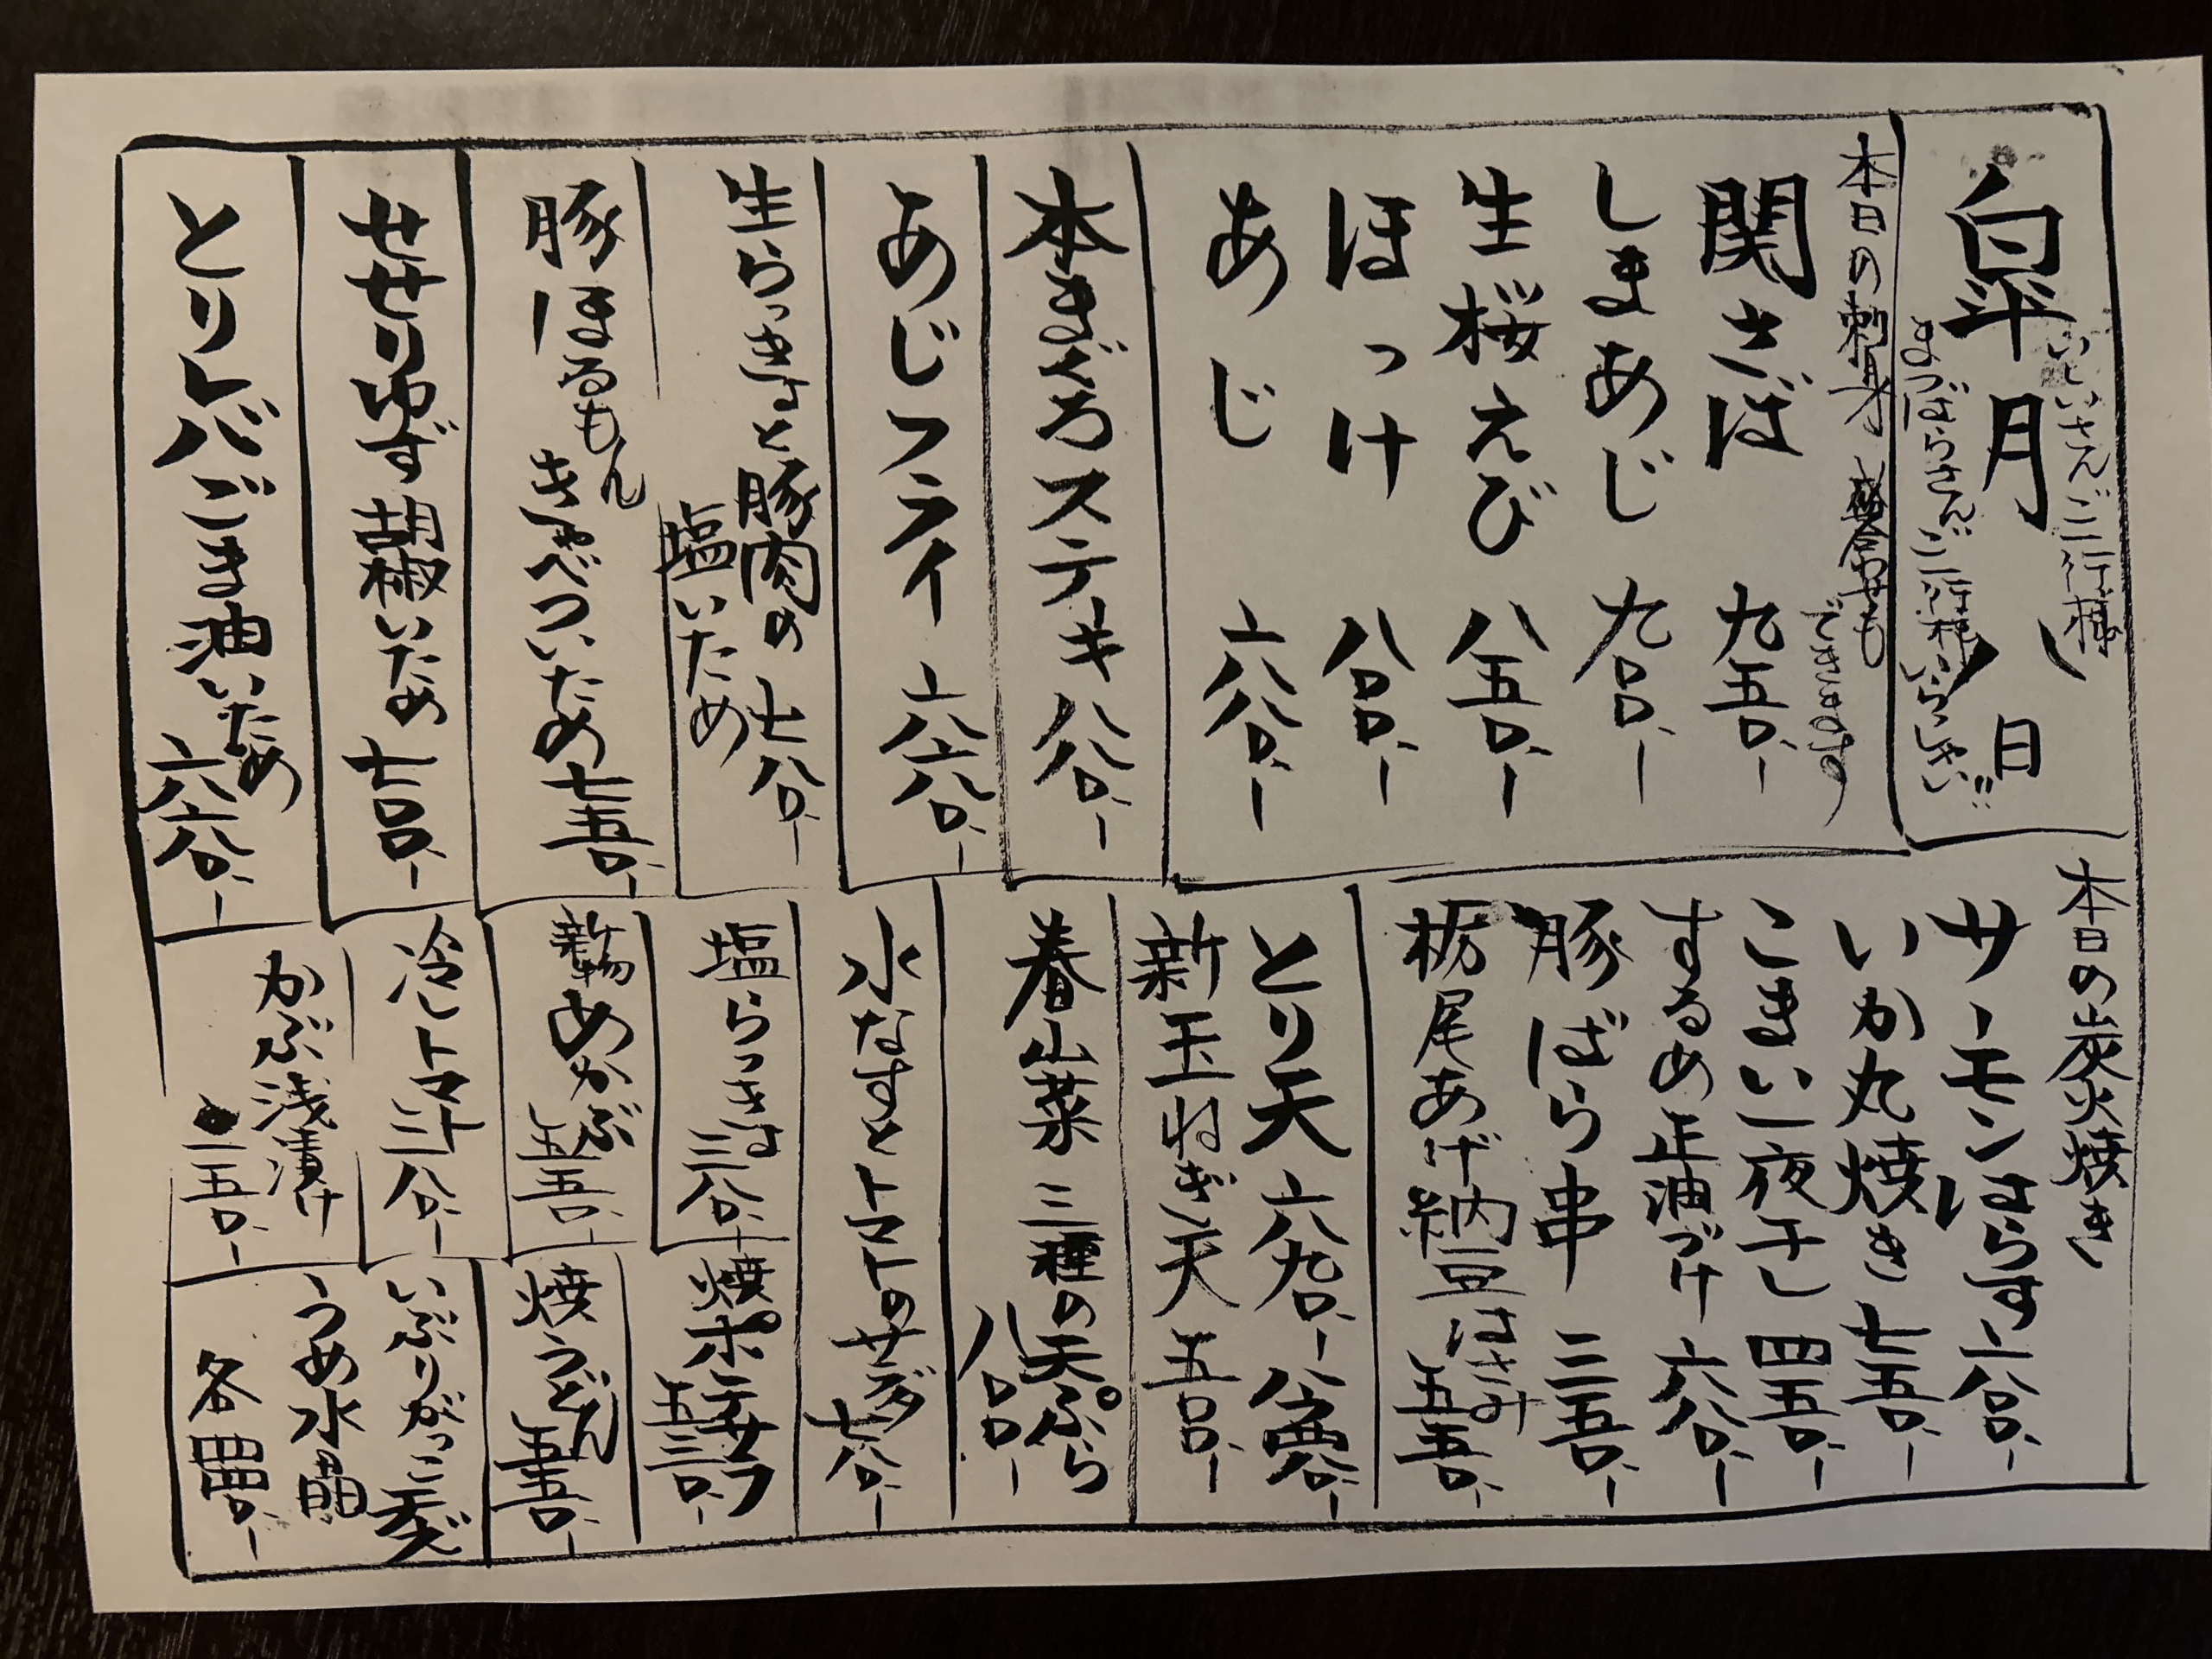 月 日
いしいさんご一行様
まつばらさんご一行様 いらっしゃい!!
本日の刺身 盛合せも
できます
関さば 九五〇、ー
しまあじ 九〇〇、ー
生桜えび 八五〇、ー
ほっけ 八〇〇、ー
あじ 六八〇、ー
本まぐろステーキ 八八〇、ー
あじフライ 六六〇、ー
生らっきょと豚肉の
塩いため 七八〇、ー
豚ほるもん
きゃべついため 七五〇、ー
せせりゆず胡椒いため 七〇〇、ー
とりレバごま油いため
六六〇、ー
本日の炭火焼き
サーモンはらす 六〇〇、ー
いか丸焼き 七五〇、ー
こまい一夜干し 四五〇、ー
するめ正油づけ 六八〇、ー
豚ばら串 三五〇、ー
栃尾あげ納豆はさみ
五五〇、ー
とり天 六九〇、ー
新玉ねぎ天 五〇〇、ー
春山菜三種の天ぷら
八〇〇、ー
水なすとトマトのサラダ
七八〇、ー
塩らっきょ
三八〇、ー
焼ポテサラ
五三〇、ー
新物めかぶ
五五〇、ー
焼うどん
五五〇、ー
冷しトマト
三八〇、ー
かぶ浅漬け
三五〇、ー
いぶりがっこチーズ
うめ水晶
各四四〇、ー